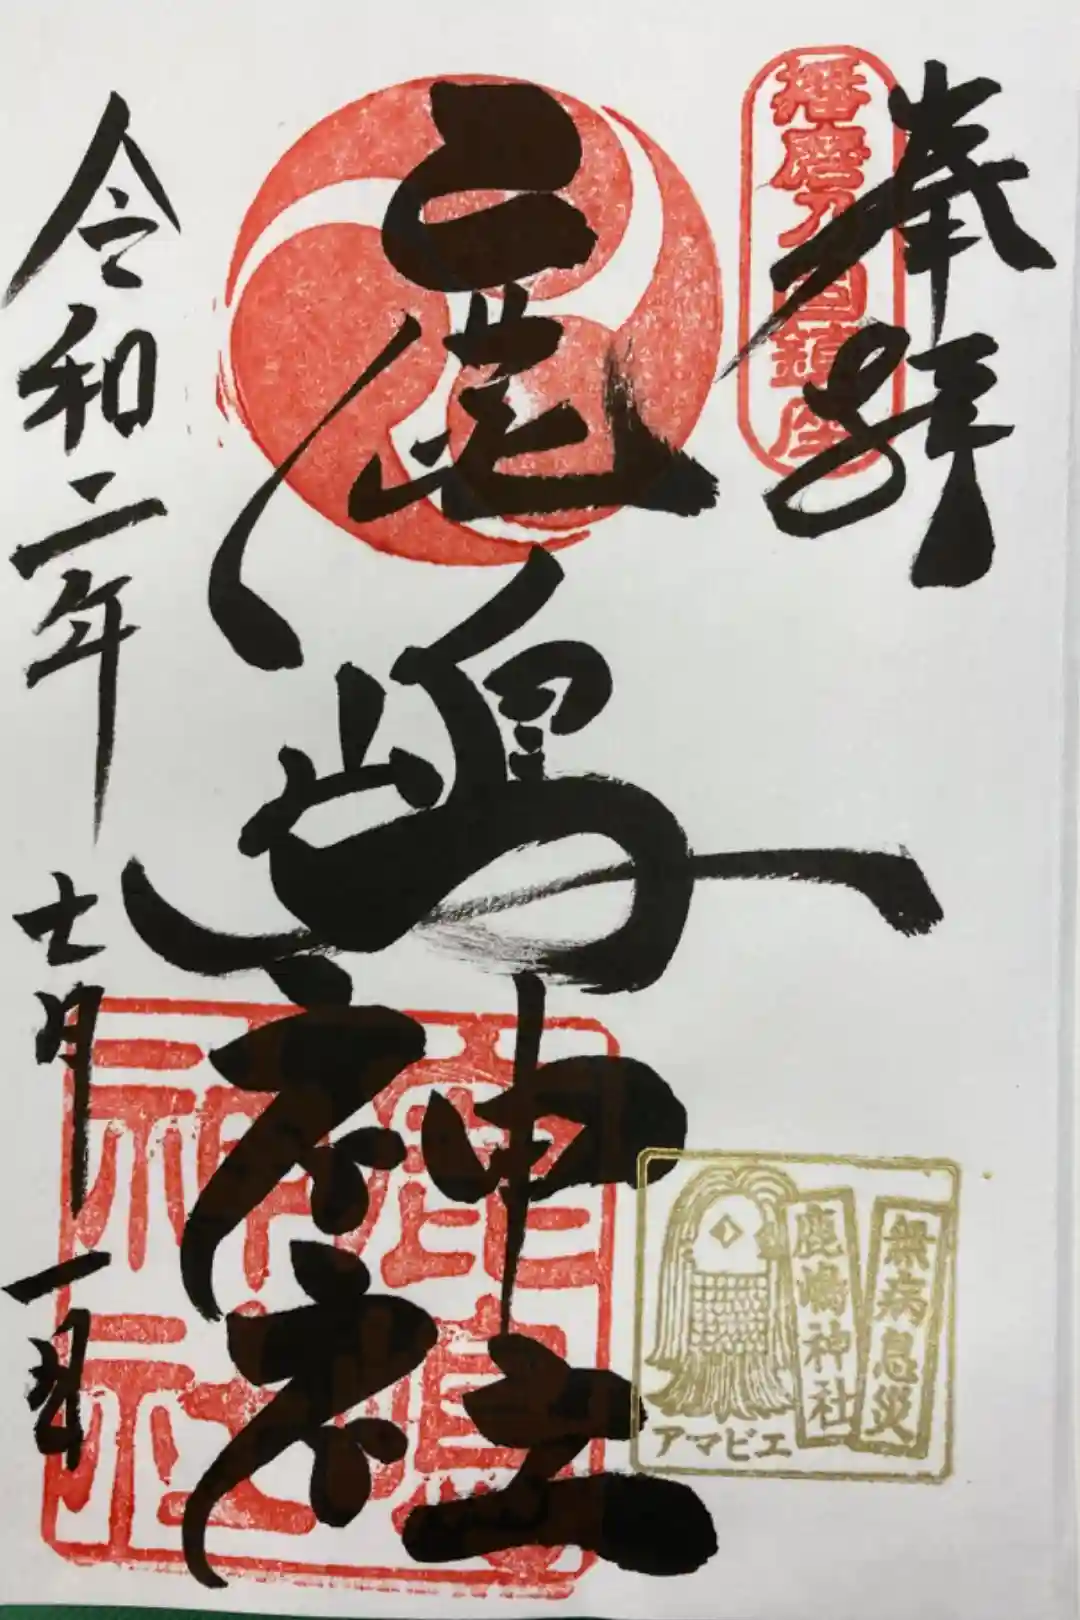 奉拝
播磨乃国鎮座
鹿嶋神社
鹿嶋
神社
無病息災
鹿嶋神社
アマビエ
令和二年七月一日